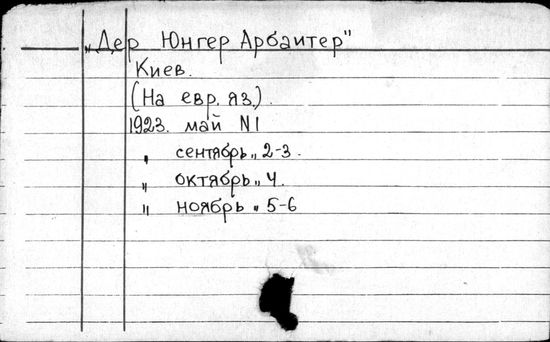 „Дер Юнгер Арбаитер"
Киев.
(На евр. яз.)
1923. май N1
„ сентябрь „ 2-3.
„ октябрь „ 4.
„ ноябрь „ 5-6